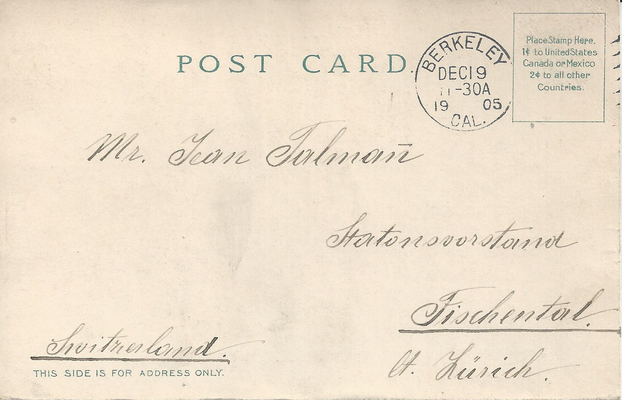 POST CARD.
BERKELEY
DEC 19
11-30A
19 05
CAL.
Place Stamp Here.
1¢ to United States
Canada or Mexico
2¢ to all other
Countries.
Mr. Jean Talman̄
Statonsvorstand
Fischental.
Ct. Zürich.
Switzerland.
THIS SIDE IS FOR ADDRESS ONLY.